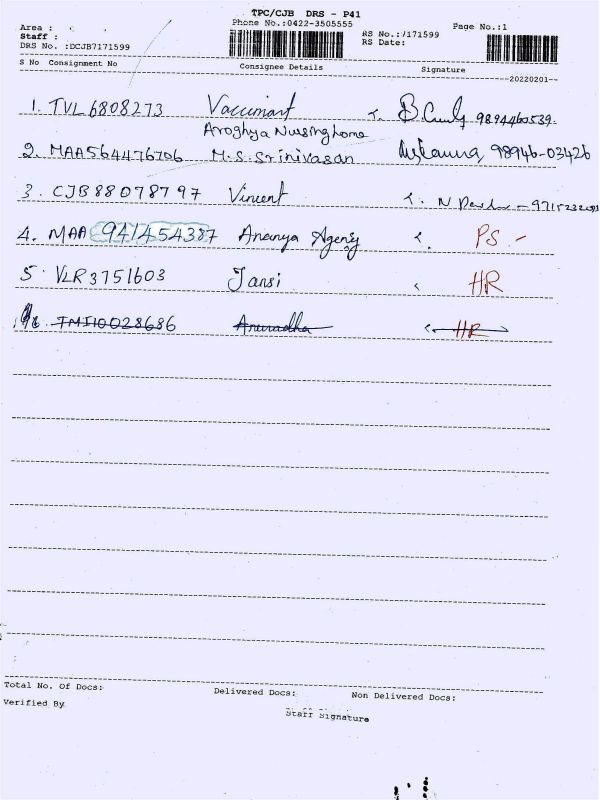 TPC/CJB DRS - P41
Area : Phone No.:0422-3505555 Page No.:1
Staff : RS No.:/171599
DRS No. :DCJB7171599 RS Date:
S No Consignment No Consignee Details Signature
20220201
1. TVL6808273 Vaccumart 9894460539.
Aroghya Nursing home
2. MAA564476706 M.S. Srinivasan 98946-03426
3. CJB88078797 Vincent
4. MAA 941454387 Ananya Agency PS -
5. VLR3751603 Jansi HR
6 IMI10028686 Anuradha HR
Total No. Of Docs: Delivered Docs: Non Delivered Docs:
Verified By Staff Signature